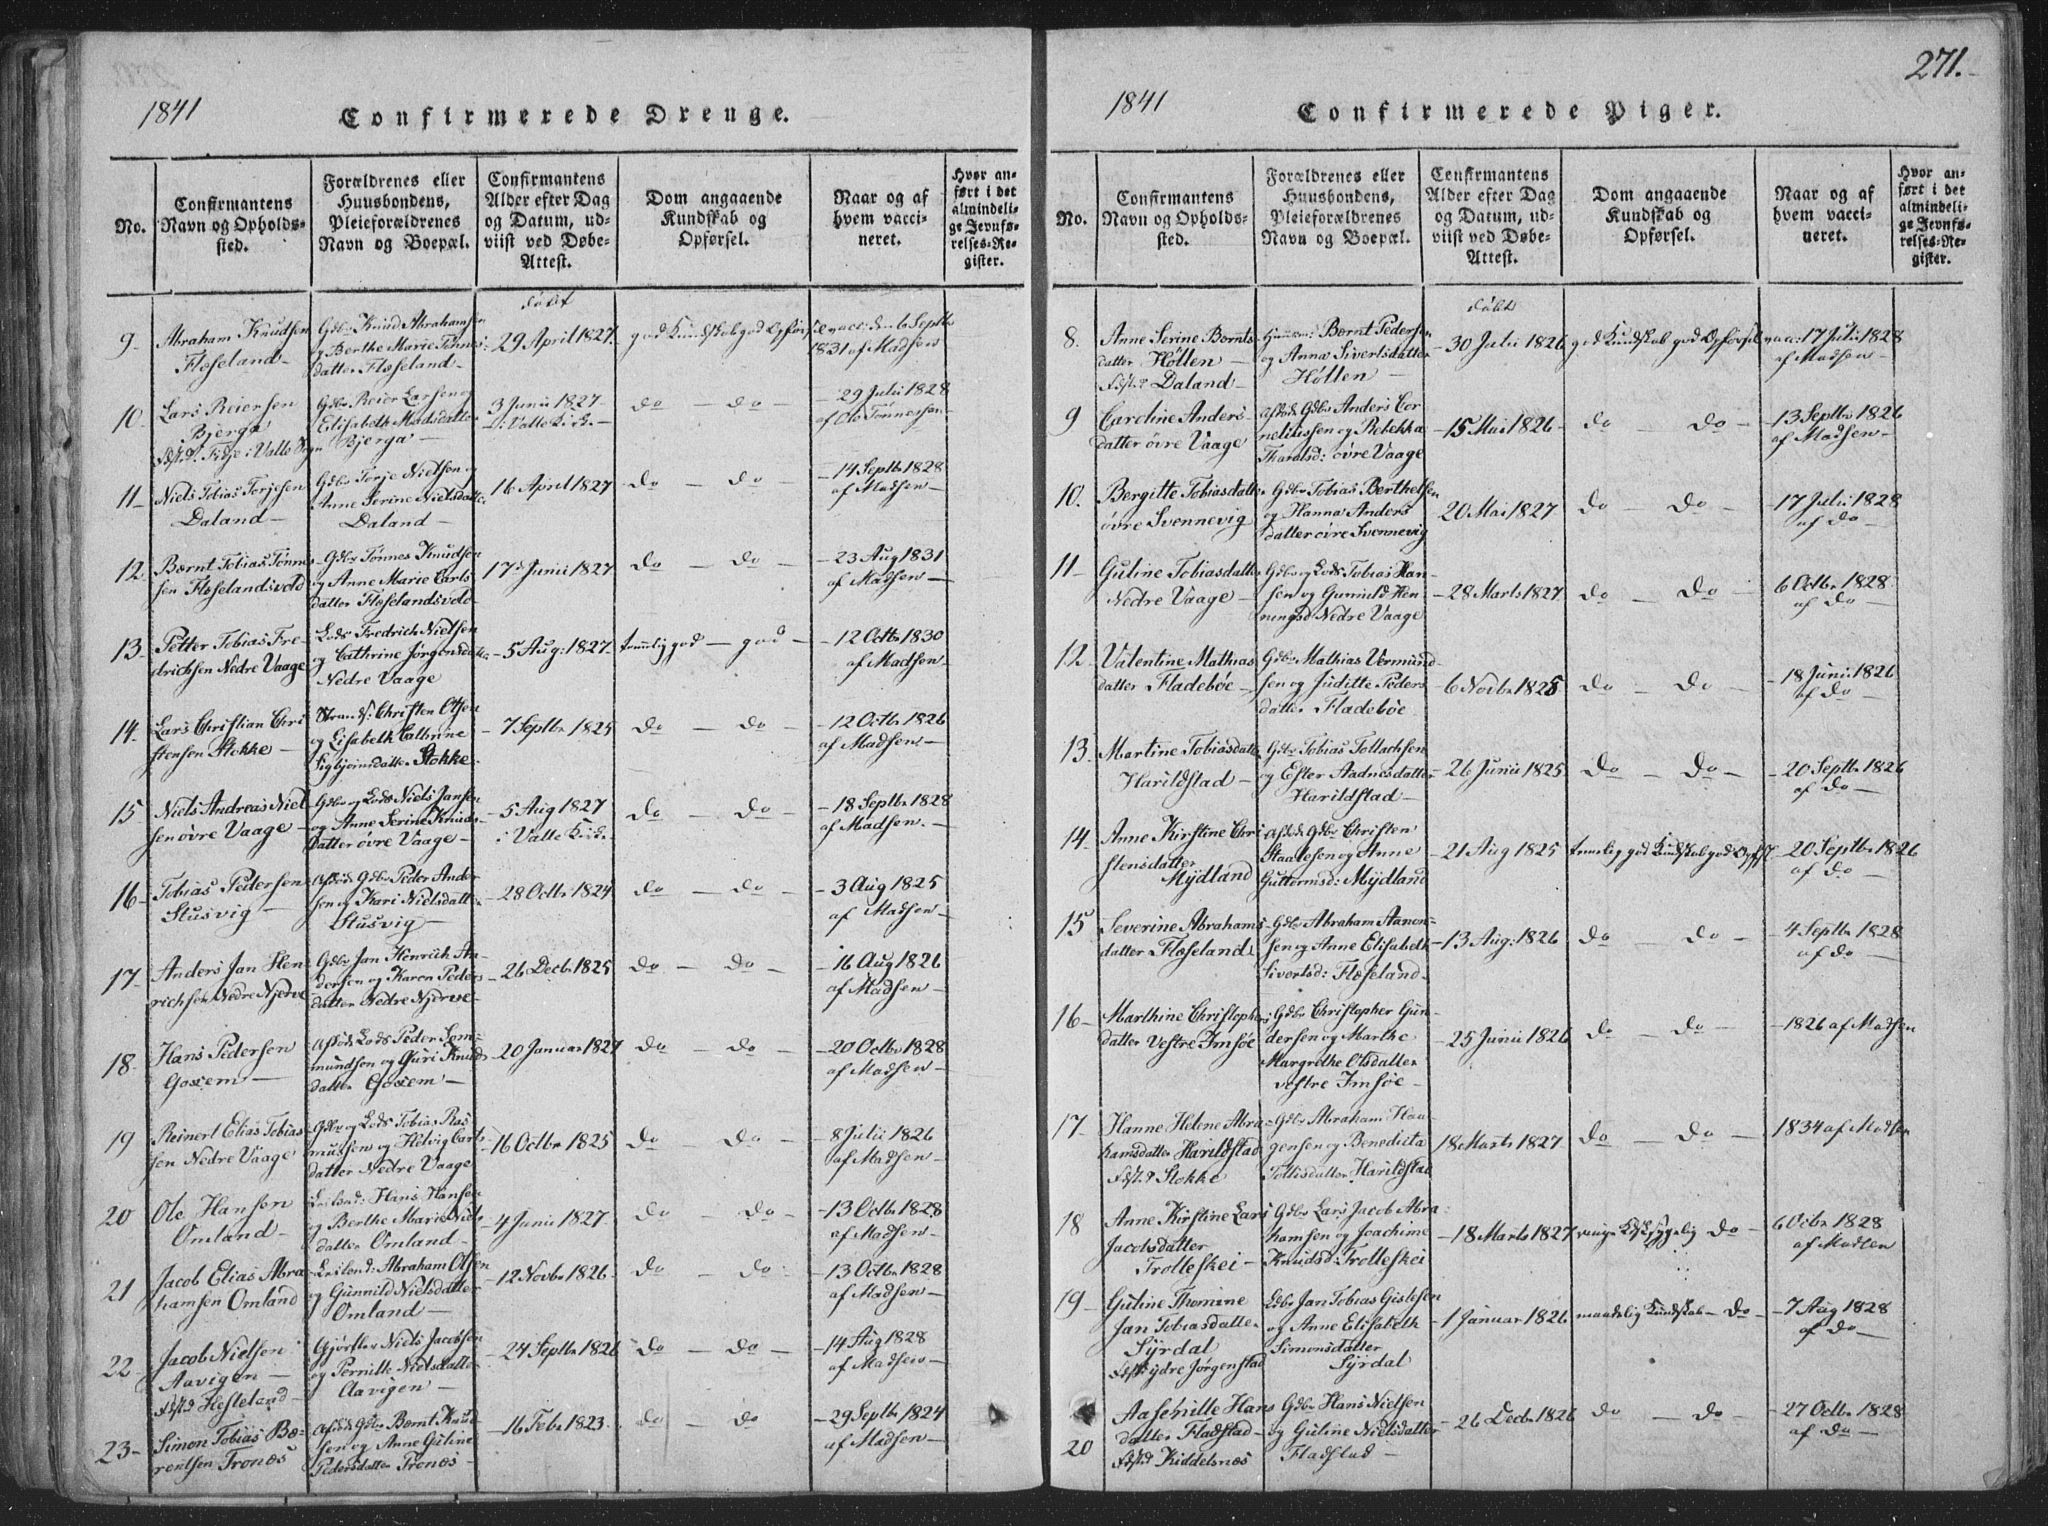 271.
1841
Confirmerede Drenge.
No.
Confirmantens
Navn og Opholds-
sted.
Forældrenes eller
Huusbondens,
Pleieforældrenes
Navn og Boepæl.
Confirmantens
Alder efter Dag
og Datum, ud-
viist ved Døbe-
Attest.
Dom angaaende
Kundskab og
Opførsel.
Naar og af
hvem vacci-
neret.
Hvor an-
ført i det
almindeli-
ge Jevnfø-
relses-Re-
gister.
døbt
9
Abraham Knudsen
Floseland
Gdbr Knud Abrahamsen
og Berthe Marie Tønnes
datter Floseland
29 April 1827
god Kundskab god Opførsel
vacc: den 6 Septb
1831 af Madsen
10
Lars Reiersen
Bjerga
Gdbr Reier Larsen og
Elisabeth Madsdatter
Bjerga
3 Junii 1827
i Valle Kirke
do — do
29 Julii 1828
af Ole Tønnessen
11
Niels Tobias Torjesen
Daland
Gdbr Torje Nielsen og
Anne Serine Nielsdatter
Daland
16 April 1827
do — do
14 Septbr 1828
af Madsen
12
Bernt Tobias Tønnes
sen Floselandsvold
Gdbr Tønnes Knudsen
og Anne Marie Carls
datter Floselandsvold
17d Junii 1827
do — do
23 Aug 1831
af Madsen
13
Petter Tobias Fre-
drichsen Nedre Vaage
Lods Fredrich Nielsen
og Cathrine Jørgensdatter
Nedre Vaage
5 Aug: 1827
temmelig god — god
12 Octbr 1830
af Madsen
14
Lars Christian Chri
stensen Stokke
Strands: Christen Olsen
og Elisabeth Cathrine
Sigbjørnsdatter Stokke
7 Septbr 1825
do — do
12 Octbr 1826
af Madsen
15
Niels Andreas Niel
sen øvre Vaage
Gdbr og Lods Niels Jansen
og Anne Serine Knuds
datter øvre Vaage
5 Aug 1827
i Valle Kirke
do — do
18 Septbr 1828
af Madsen
16
Tobias Pedersen
Stusvig
Afdøde Gdbr Peder Ander
sen og Kari Nielsdatter
Stusvig
28 Octbr 1824
do — do
3 Aug 1825
af Madsen
17
Anders Jan Hen
richsen Nedre Njerve
Gdbr Jan Henrich An
dersen og Karen Peders
datter Nedre Njerve
26 Decbr 1825
do — do
16 Aug 1826
af Madsen
18
Hans Pedersen
Goxem
Afdøde Lods Peder Som
mundsen og Guri Knuds
datter Goxem
20 Januar 1827
do — do
20 Octbr 1828
af Madsen
19
Reinert Elias Tobias
sen Nedre Vaage
Gdbr og Lods Tobias Ras
mussen og Helvig Carls
datter Nedre Vaage
16 Octbr 1825
do — do
8 Julii 1826
af Madsen
20
Ole Hansen
Omland
Leilend: Hans Hansen
og Berthe Marie Niels
datter Omland
4 Junii 1827
do — do
13 Octbr 1828
af Madsen
21
Jacob Elias Abra
hamsen Omland
Leilend: Abraham Olsen
og Gunnild Nielsdatter
Omland
12 Novbr 1826
do — do
13 Octbr 1828
af Madsen
22
Jacob Nielsen
Aavigen
Adst: Hesteland
Gjørtler Niels Jacobsen
og Pernille Nielsdatter
Aavigen
24 Septbr 1826
do — do
14 Aug 1828
af Madsen
23
Simon Tobias Be-
rentsen Tronæs
Afdøde Gdbr Bernt Knud
sen og Anne Guline
Pedersdatter Tronæs
16 Febr 1823
do — do
29 Septbr 1824
af Madsen
1841
Confirmerede Piger.
No.
Confirmantens
Navn og Opholds-
sted.
Forældrenes eller
Huusbondens,
Pleieforældrenes
Navn og Boepæl.
Confirmantens
Alder efter Dag
og Datum, ud-
viist ved Døbe-
Attest.
Dom angaaende
Kundskab og
Opførsel.
Naar og af
hvem vacci-
neret.
Hvor an-
ført i det
almindeli-
ge Jevnfø-
relses-Re-
gister.
døbt
8
Anne Serine Bernts
datter Høllen
Adst: Daland
Huusm: Bernt Pedersen
og Anna Sivertsdatter
Høllen
30 Julii 1826
god Kundskab god Opførsel
vacc: 17 Julii 1828
af Madsen
9
Caroline Anders-
datter øvre Vaage
Afdøde Gdbr Anders Cor
neliussen og Rebekka
Tharalsd: øvre Vaage
15 Mai 1826
do — do
13 Septbr 1826
af Madsen
10
Bergitte Tobiasdatter
øvre Svennevig
Gdbr Tobias Berthelsen
og Hanna Anders
datter øvre Svennevig
20 Mai 1827
do — do
17 Julii 1828
af do
11
Guline Tobiasdatter
Nedre Vaage
Gdbr og Lods Tobias Han-
sen og Gunnild Hen
ningsd Nedre Vaage
28 Marts 1827
do — do
6 Octbr 1828
af do
12
Valentine Mathias
datter Fladebøe
Gdbr Mathias Vermund
sen og Juditte Peders
datter Fladebøe
6 Novbr 1825
do — do
18 Juni 1826
af do
13
Martine Tobiasdatter
Harildstad
Gdbr Tobias Tollachsen
og Ester Aadnesdatter
Harildstad
26 Junii 1825
do — do
20 Septbr 1826
af do
14
Anne Kirstine Chri
stensdatter
Mydland
Afdøde Gdbr Christen
Staalesen og Anne
Guttormsd: Mydland
21 Aug 1825
temmelig god Kundskab god Opførsel
20 Septbr 1826
af do
15
Severine Abrahams
datter Floseland
Gdbr Abraham Aanon-
sen og Anne Elisabeth
Sivertsd: Floseland
13 Aug: 1826
do — do
4 Septbr 1828
af do
16
Marthine Christopher
datter Vestre Imsøe
Gdbr Christopher Gun-
dersen og Marthe
Margrethe Olsdatter
vestre Imsøe
25 Junii 1826
do — do
1826 af Madsen
17
Hanne Helene Abra-
hamsdatter Harildstad
Adst: Stokke
Gdbr Abraham Hau-
gensen og Benedicta
Tollisdatter Harildstad
18 Marts 1827
do — do
1834 af Madsen
18
Anne Kirstine Lars
Jacobsdatter
Trolleskei
Gdbr Lars Jacob Abra-
hamsen og Joachime
Knudsd: Trolleskei
18 Marts 1827
do
6 Octbr 1828
af Madsen
19
Guline Thomine
Jan Tobiasdatter
Syrdal
Adst: Ydre Jørgenstad
Gdbr Jan Tobias Gislesen
og Anne Elisabeth
Simonsdatter
Syrdal
1 Januar 1826
maadelig Kundskab — do
7 Aug 1828
af do
20
Aasehille Hans
datter Fladstad
Adst: Kiddelsnæs
Gdbr Hans Nielsen
og Guline Nielsdatter
Fladstad
26 Decbr 1826
do — do
27 Octbr 1828
af do